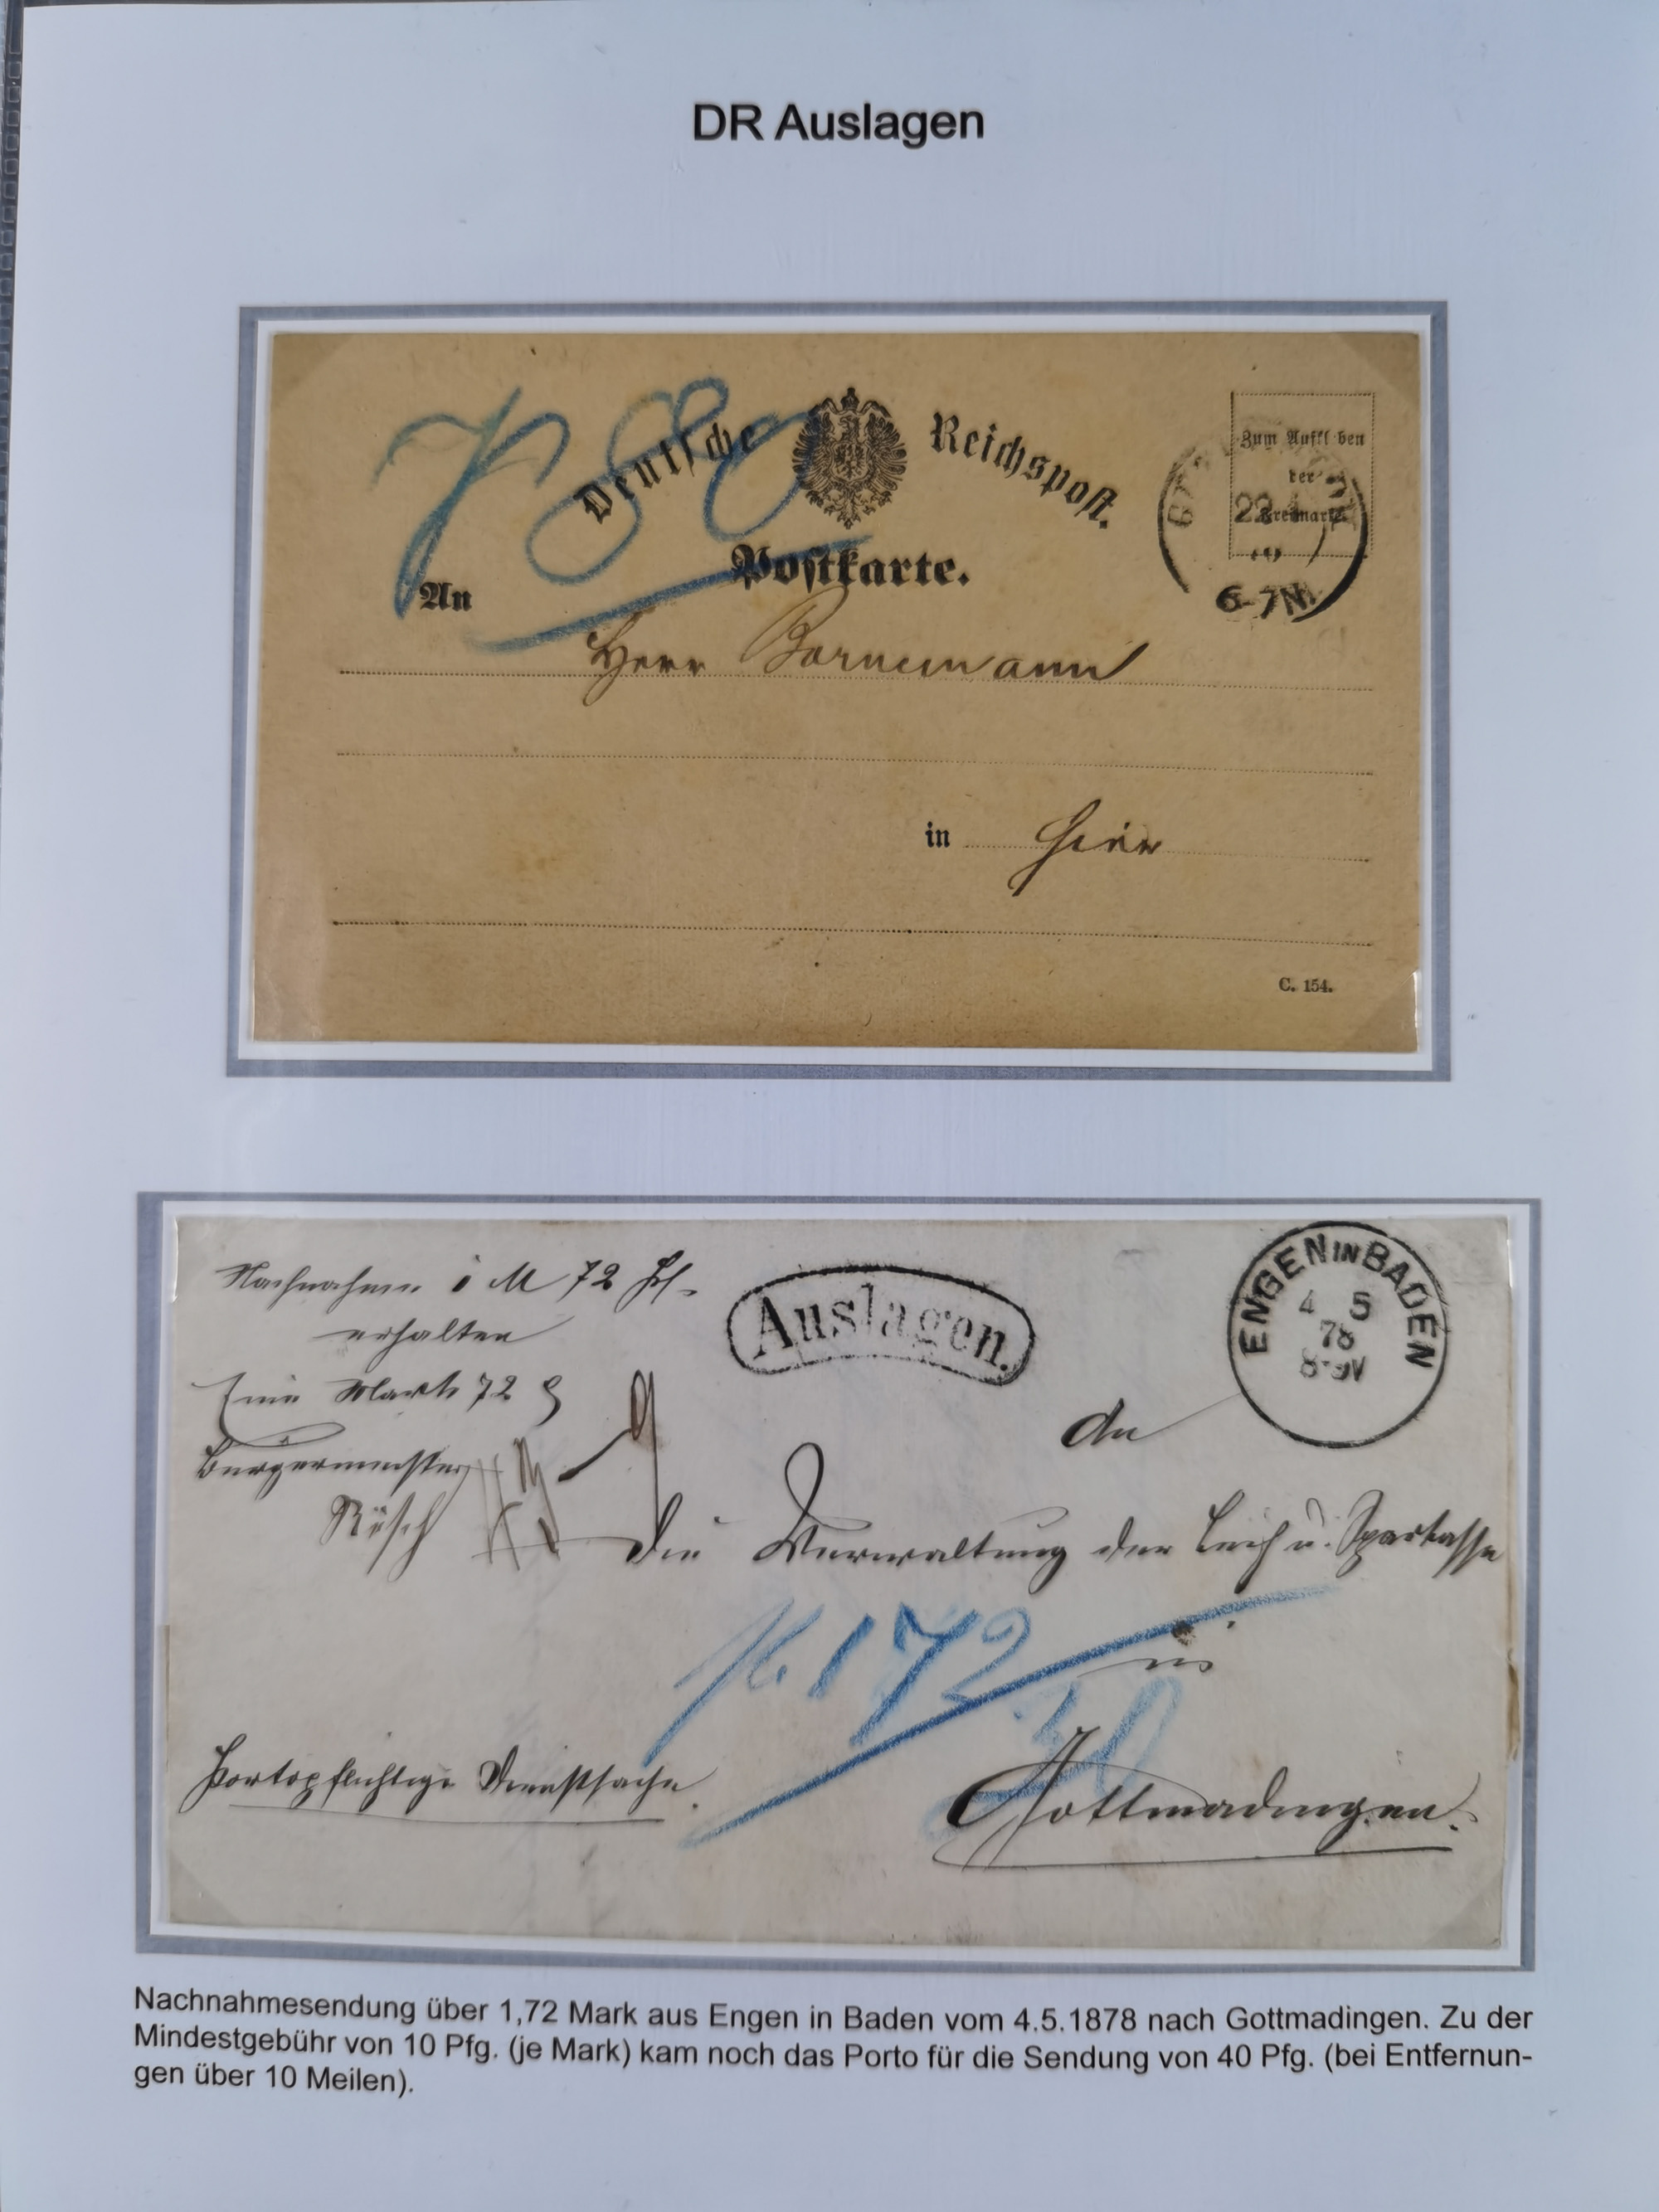 DR Auslagen
Deutsche Reichspost.
Zum Aufkleben
der
Freimarke
22
6-7N.
Postkarte.
An
Herr Bornemann
in Hier
C. 154.
Nachnahme 1 M 72 Pf.
erhalten
Eine Mark 72
Bürgermeister
Auslagen.
ENGEN IN BADEN
4 5
78
8-9V
An
die Verwaltung der Leih u. Sparkasse
172
in
Portopflichtige Dienstsache.
Gottmadingen.
Nachnahmesendung über 1,72 Mark aus Engen in Baden vom 4.5.1878 nach Gottmadingen. Zu der
Mindestgebühr von 10 Pfg. (je Mark) kam noch das Porto für die Sendung von 40 Pfg. (bei Entfernun-
gen über 10 Meilen).